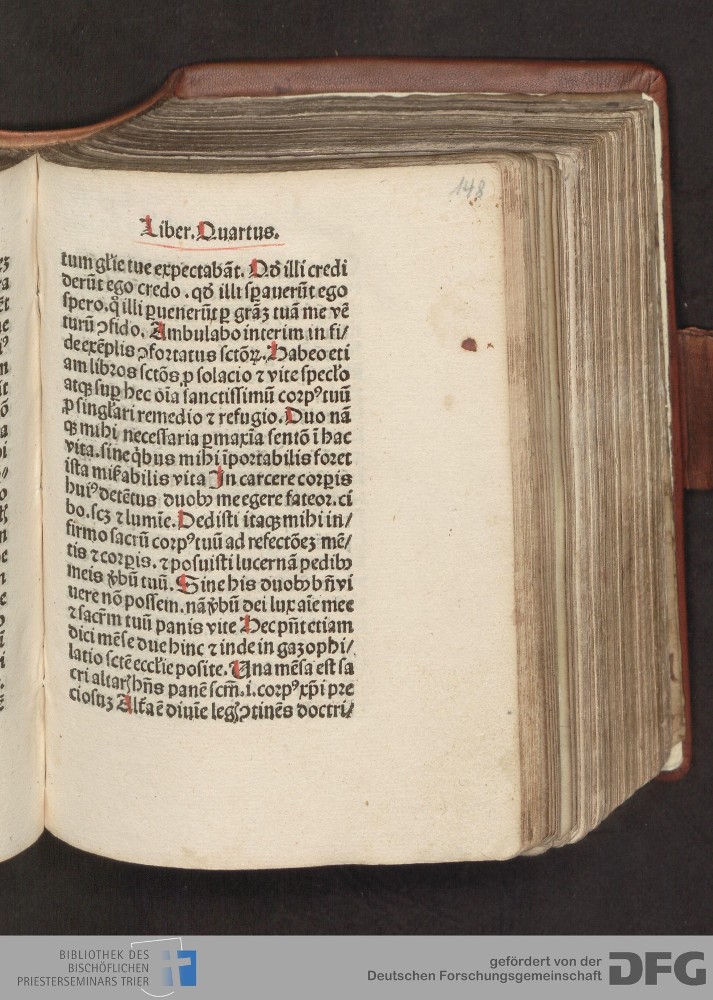 148
Liber. Quartus.
tum gl̄ie tue expectabāt. Qd̄ illi credi
derūt ego credo. qd̄ illi sꝑauerūt ego
spero. q̄ illi ꝑuenerūt ꝑ grāꝫ tuā me vē
turū ꝯfido. Ambulabo interim in fi/
de exēplis ꝯfortatus sctōꝝ. Habeo eti
am libros sctōs ꝓ solacio ⁊ vite specl̄o
atqꝫ suꝑ hec oīa sanctissimū corpꝰ tuū
ꝓ singl̄ari remedio ⁊ refugio. Duo nā
qꝫ mihi necessaria ꝑmaxīa sentō ī hac
vita. sine qͥbus mihi īportabilis foret
ista mik̄abilis vita In carcere corꝑis
huiꝰ detētus duobꝫ me egere fateor. ci
bo. scꝫ ⁊ lumīe. Dedisti itaqꝫ mihi in/
firmo sacrū corpꝰ tuū ad refectōeꝫ mē/
tis ⁊ corꝑis. ⁊ posuisti lucernā pedibꝫ
meis v̄bū tuū. Sine his duobꝫ bn̄ vi
uere nō possem. nā v̄bū dei lux aīe mee
⁊ sacr̄m tuū panis vite Hec pn̄t etiam
dici mēse due hinc ⁊ inde in gazophi/
latio sctē eccl̄ie posite. Una mēsa est sa
cri altarꝭ hn̄s panē scm̄. i. corpꝰ xp̄i pre
ciosuꝫ Alt̄a ē diuīe legꝭ ꝯtinēs doctri/
BIBLIOTHEK DES
BISCHÖFLICHEN
PRIESTERSEMINARS TRIER
gefördert von der
Deutschen Forschungsgemeinschaft
DFG